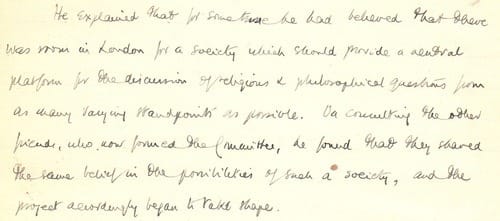 He explained that for sometime he had believed that there
was room in London for a society which should provide a neutral
platform for the discussion of religious & philosophical questions from
as many varying standpoints as possible. On consulting the other
friends, who now formed the Committee, he found that they shared
the same belief in the possibilities of such a society, and the
project accordingly began to take shape.